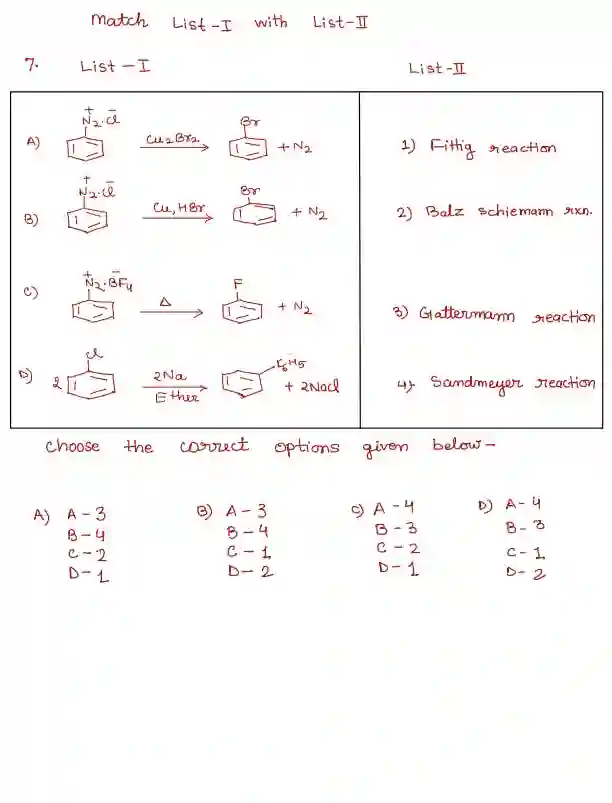 Match List-I with List-II
7. List-I List-II
A) N₂⁺.Cl⁻ Cu₂Br₂ Br + N₂ 1) Fittig reaction
B) N₂⁺.Cl⁻ Cu, HBr Br + N₂ 2) Balz schiemann rxn.
C) N₂⁺.BF₄⁻ Δ F + N₂ 3) Gattermann reaction
D) 2 Cl 2Na Ether C₆H₅ + 2NaCl 4) Sandmeyer reaction
choose the correct options given below-
A) A-3 B) A-3 C) A-4 D) A-4
B-4 B-4 B-3 B-3
C-2 C-1 C-2 C-1
D-1 D-2 D-1 D-2